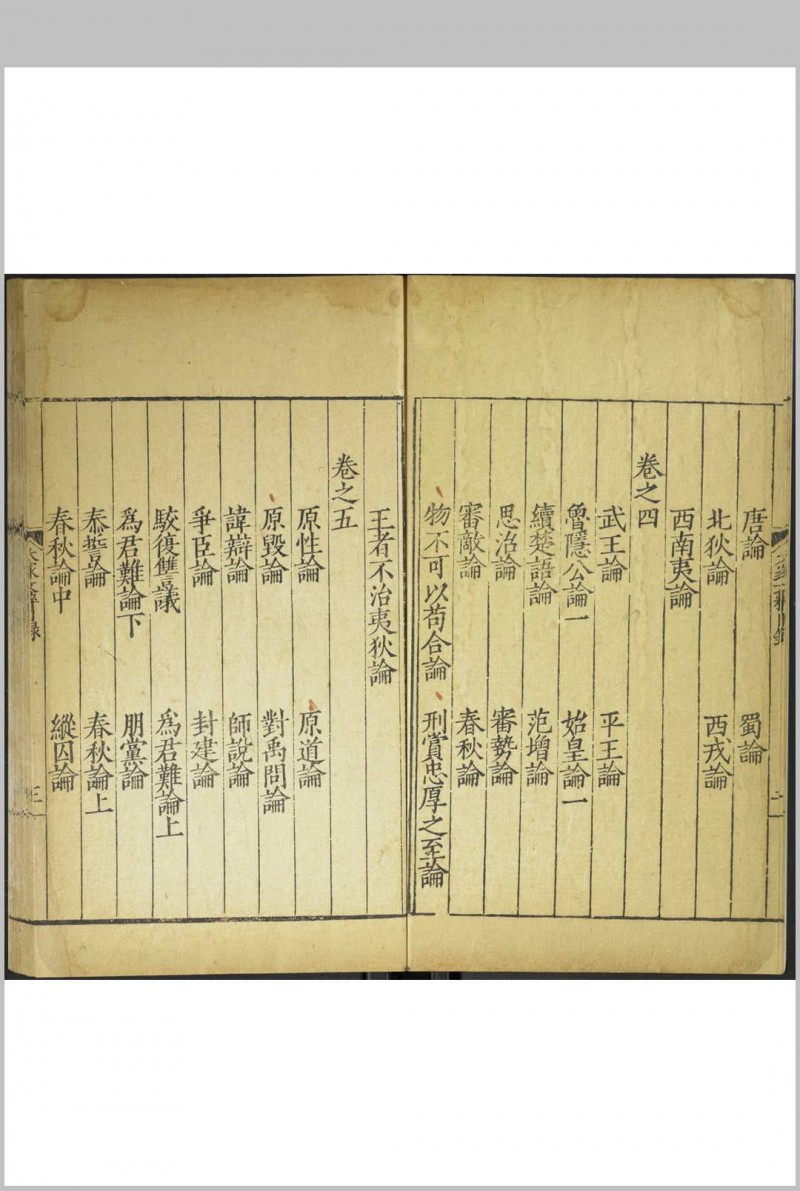 唐論　蜀論
北狄論　西戎論
西南夷論
卷之四
武王論　平王論
魯隱公論一　始皇論一
續楚語論　范增論
思治論　審勢論
審敵論　春秋論
物不可以苟合論　刑賞忠厚之至論
王者不治夷狄論
卷之五
原性論　原道論
原毀論　對禹問論
諱辯論　師說論
爭臣論　封建論
駁復讐議　爲君難論上
爲君難論下　朋黨論
泰誓論　春秋論上
春秋論中　縱囚論
三